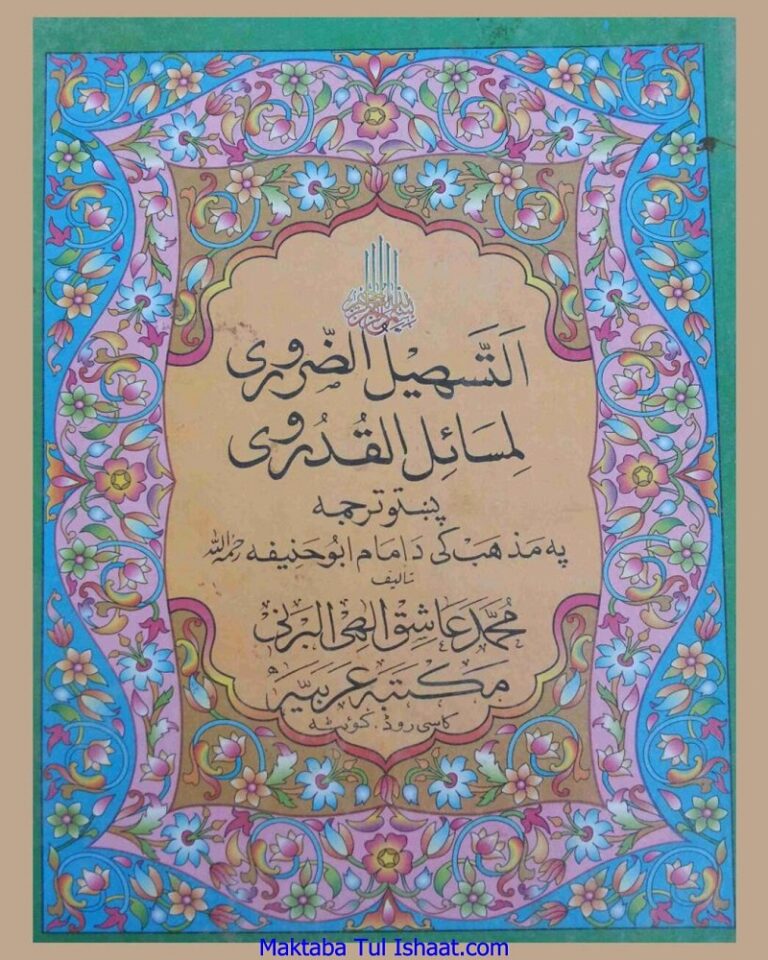 بسم الله الرحمن الرحيم
اَلتَّسهِيلُ الضَّرُورِى
لِمسَائِلِ القُدُرِوى
پښتو ترجمه
په مذهب کی د امام ابو حنیفه رحمہ اللہ
تالیف
مُحمَّد عَاشِق اِلٰهِی البَرنیُ
مکتبه عربیّه
کاسی روډ، کوئټه
Maktaba Tul Ishaat.com